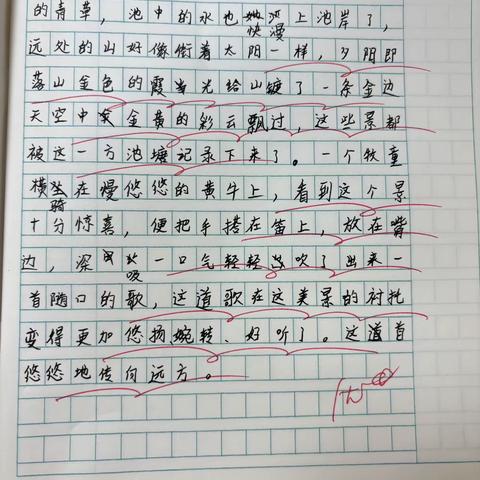 的青草，池中的水也快漫上池岸了，
远处的山好像衔着太阳一样，夕阳即
落山金色的霞光给山镀了一条金边
天空中金黄的彩云飘过，这些景都
被这一方池塘记录下来了。一个牧童
横骑在慢悠悠的黄牛上，看到这个景
十分惊喜，便把手搭在笛上，放在嘴
边，深吸一口气轻轻吹了出来一
首随口的歌，这道歌在这美景的衬托
变得更加悠扬婉转、好听了。这道首
悠悠地传向远方。